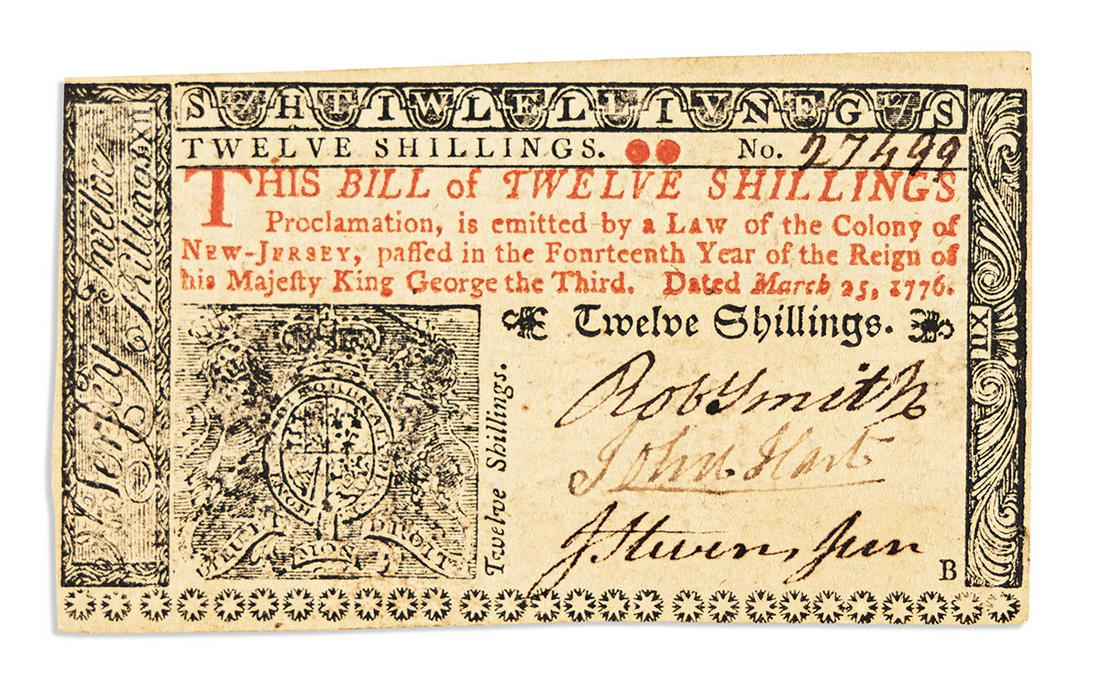 SHTIWLELLIVNEGS
TWELVE SHILLINGS. No. 27499
THIS BILL of TWELVE SHILLINGS
Proclamation, is emitted by a LAW of the Colony of
NEW-JERSEY, paſſed in the Fourteenth Year of the Reign of
his Majeſty King George the Third. Dated March 25, 1776.
Twelve Shillings.
Rob Smith
John Hart
J Stevens, Jun
B
Twelve Shillings.
DIEU ET MON DROIT
N. Jerſey Twelve
Shillings. XII
XII